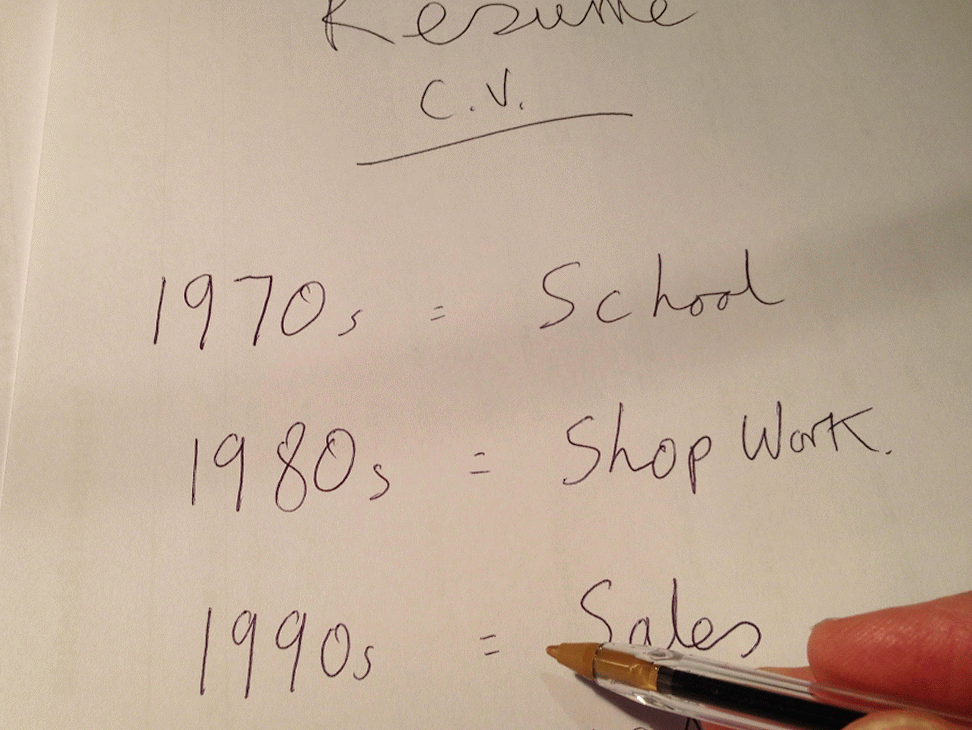 Resume
C.V.
1970s = School
1980s = Shop Work.
1990s = Sales